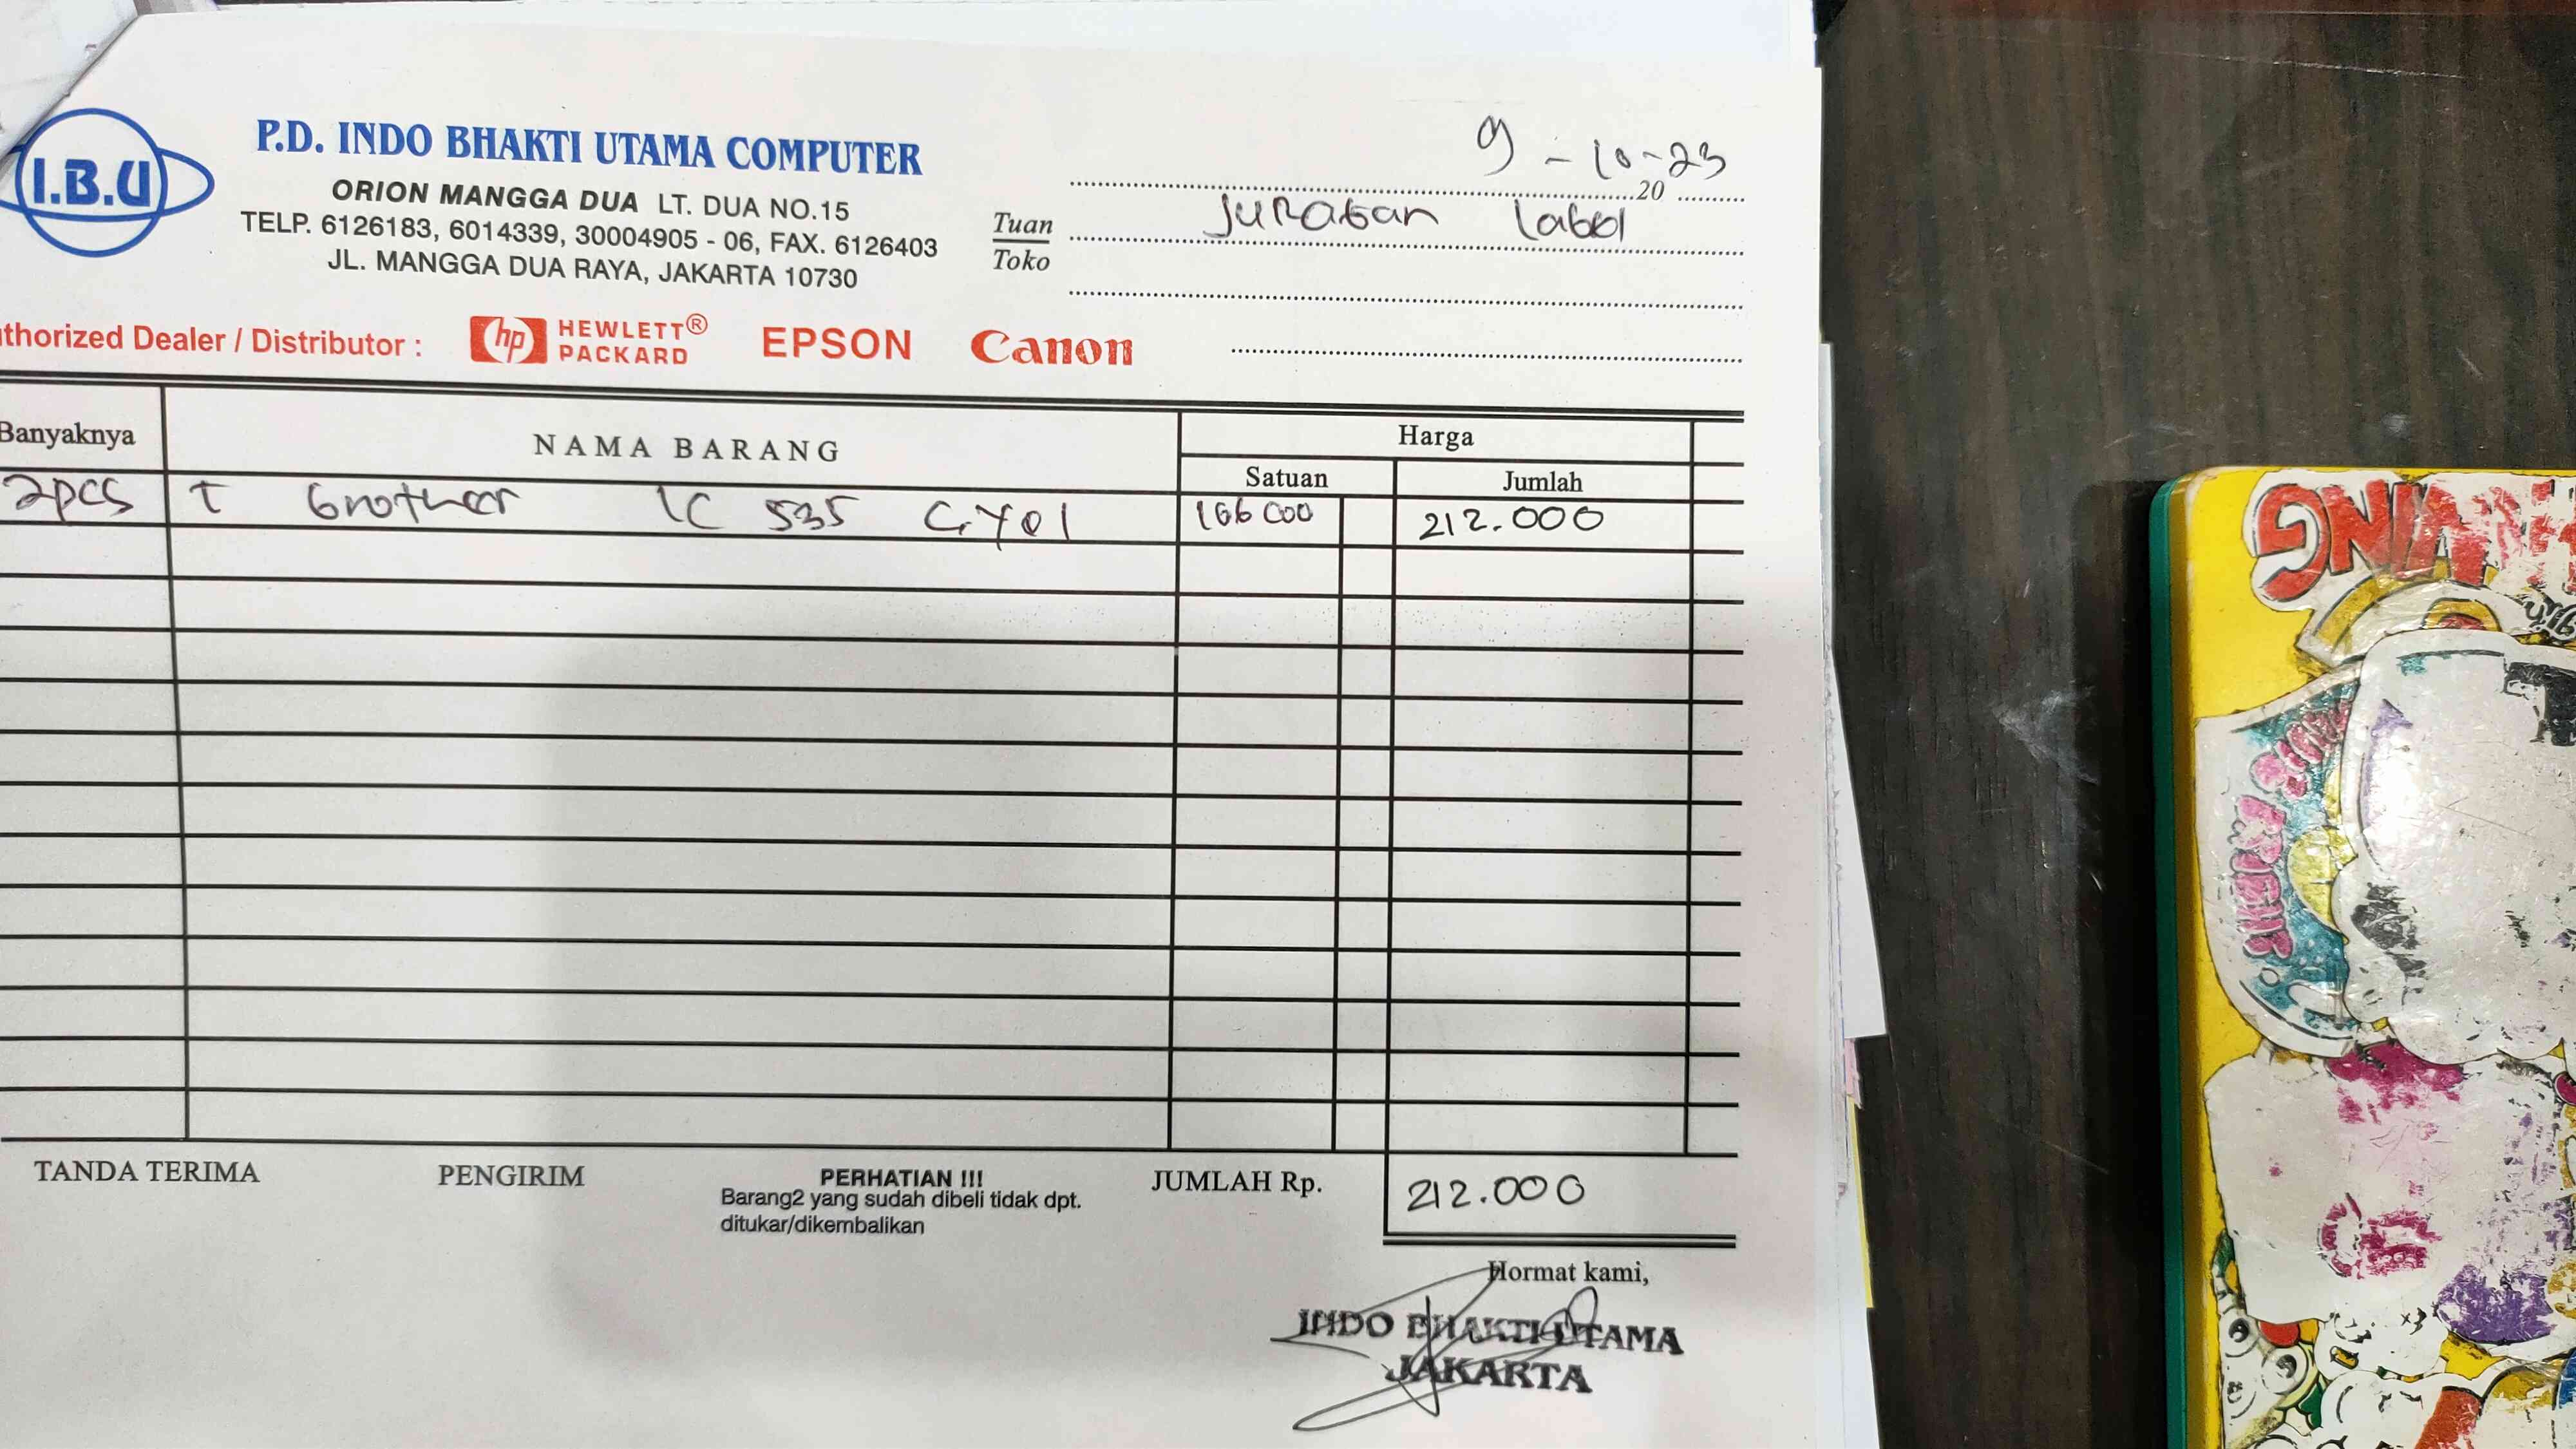 I.B.U
P.D. INDO BHAKTI UTAMA COMPUTER
ORION MANGGA DUA LT. DUA NO.15
TELP. 6126183, 6014339, 30004905 - 06, FAX. 6126403
JL. MANGGA DUA RAYA, JAKARTA 10730
9 - 10-23
20
Tuan
Toko
Juragan Label
thorized Dealer / Distributor :
hp HEWLETT® PACKARD EPSON Canon
Banyaknya NAMA BARANG Harga
Satuan Jumlah
2pcs T Brother LC 535 C, Yel 106 000 212.000
TANDA TERIMA PENGIRIM PERHATIAN !!! JUMLAH Rp. 212.000
Barang2 yang sudah dibeli tidak dpt.
ditukar/dikembalikan
Hormat kami,
INDO BHAKTI UTAMA
JAKARTA